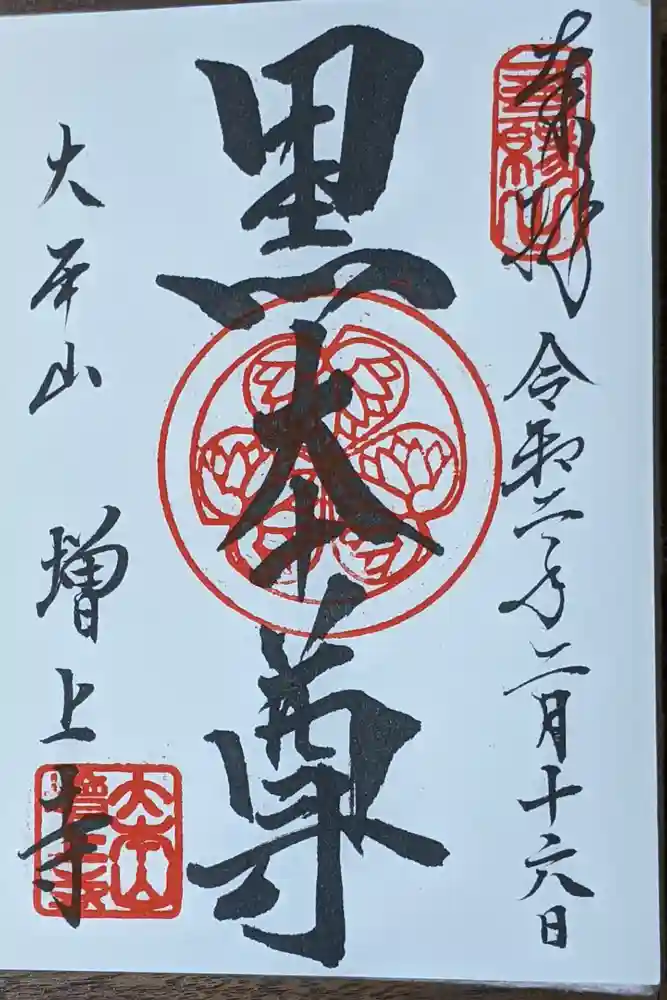 奉拝
令和二年二月十六日
黒本尊
大本山
増上寺
大本山
増上寺